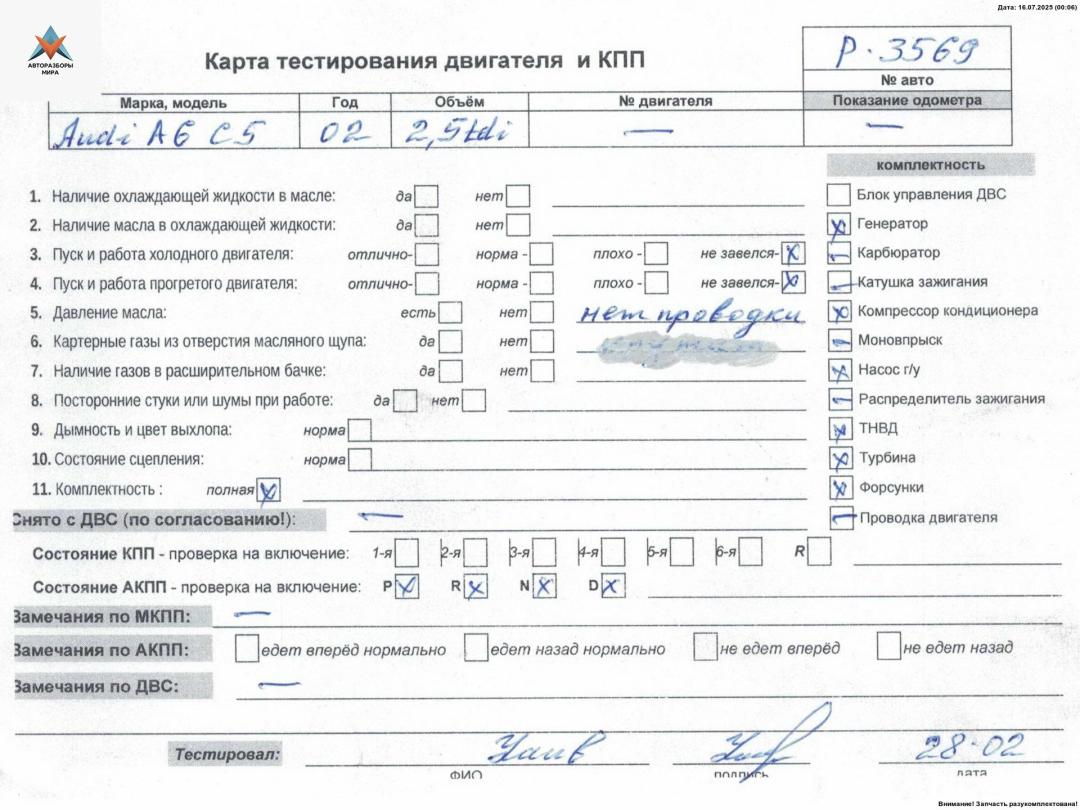 Дата: 16.07.2025 (00:06)
АВТОРАЗБОРЫ
МИРА
Карта тестирования двигателя и КПП
Р.3569
№ авто
Марка, модель Год Объём № двигателя Показание одометра
Audi A6 C5 02 2,5tdi — —
комплектность
1. Наличие охлаждающей жидкости в масле: да нет
Блок управления ДВС
2. Наличие масла в охлаждающей жидкости: да нет
Генератор
3. Пуск и работа холодного двигателя: отлично- норма - плохо - не завелся-
Карбюратор
4. Пуск и работа прогретого двигателя: отлично- норма - плохо - не завелся-
Катушка зажигания
5. Давление масла: есть нет нет проводки
Компрессор кондиционера
6. Картерные газы из отверстия масляного щупа: да нет
Моновпрыск
7. Наличие газов в расширительном бачке: да нет
Насос г/у
8. Посторонние стуки или шумы при работе: да нет
Распределитель зажигания
9. Дымность и цвет выхлопа: норма
ТНВД
10. Состояние сцепления: норма
Турбина
11. Комплектность : полная
Форсунки
Снято с ДВС (по согласованию!): —
Проводка двигателя
Состояние КПП - проверка на включение: 1-я 2-я 3-я 4-я 5-я 6-я R
Состояние АКПП - проверка на включение: P R N D
Замечания по МКПП: —
Замечания по АКПП: едет вперёд нормально едет назад нормально не едет вперёд не едет назад
Замечания по ДВС: —
Тестировал: 28-02
ФИО подпись дата
Внимание! Запчасть разукомплектована!